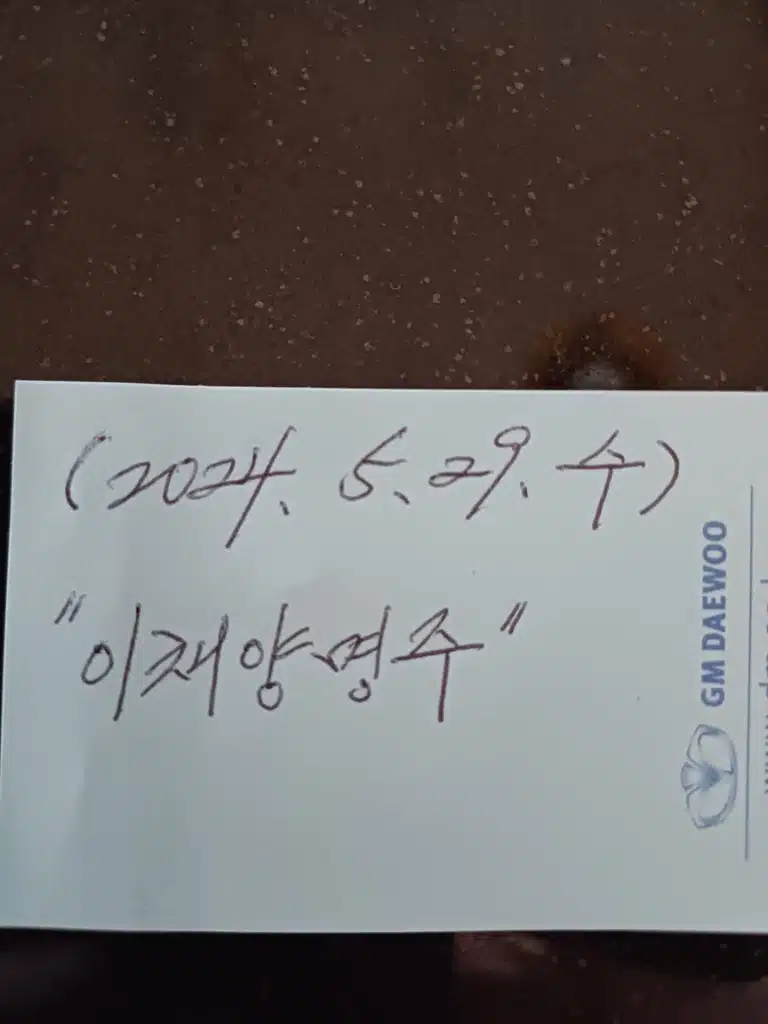 (2024. 5. 29. 수)
"이재양명주"
GM DAEWOO